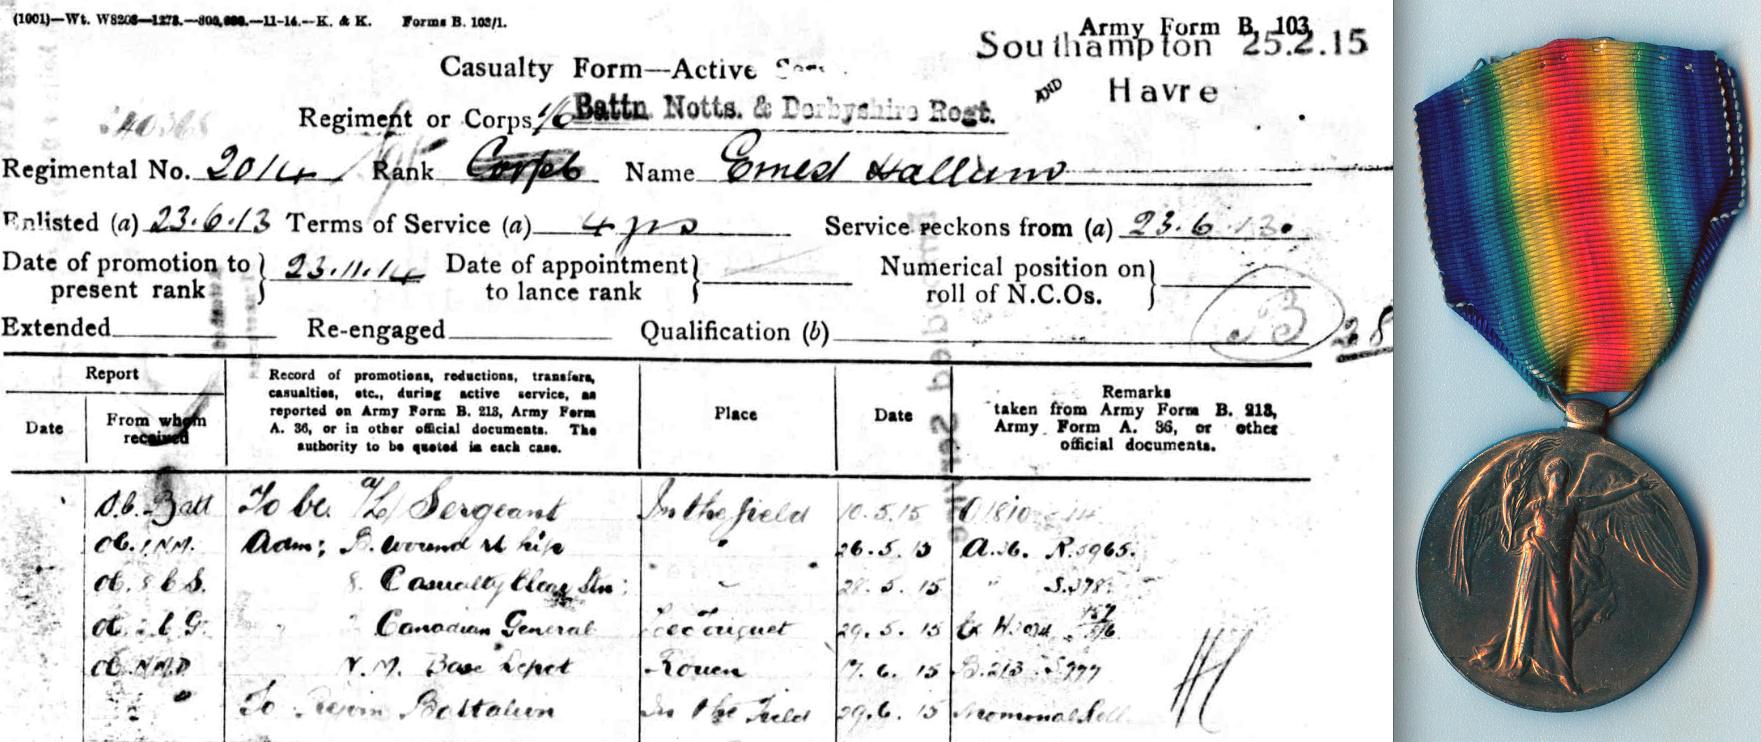 (1001)—Wt. W8208—1278.—800,000.—11-14.—K. & K. Forms B. 103/1.
Army Form B. 103.
Southampton 25.2.15
AND Havre
Casualty Form—Active
Regiment or Corps 1/6 Battn Notts. & Derbyshire Regt.
Regimental No. 2014 Rank Corpl Name Ernest Hallum
Enlisted (a) 23.6.13 Terms of Service (a) 4 yrs Service reckons from (a) 23.6.13
Date of promotion to present rank } 23.11.14 Date of appointment to lance rank } Numerical position on roll of N.C.Os. }
Extended Re-engaged Qualification (b)
Report
Date
From whom received
Record of promotions, reductions, transfers, casualties, etc., during active service, as reported on Army Form B. 213, Army Form A. 36, or in other official documents. The authority to be quoted in each case.
Place
Date
Remarks taken from Army Form B. 213, Army Form A. 36, or other official documents.
Batt To be a/L/Sergeant In the field 10.5.15
Adm; B. wound rt hip " 26.5.15 A.36.
Casualty Clear Stn; " 28.5.15 "
Canadian General Le Touquet 29.5.15
N.M. Base Depot Rouen 17.6.15 B.213
To Rejoin Battalion In the Field 29.6.15 Nominal Roll